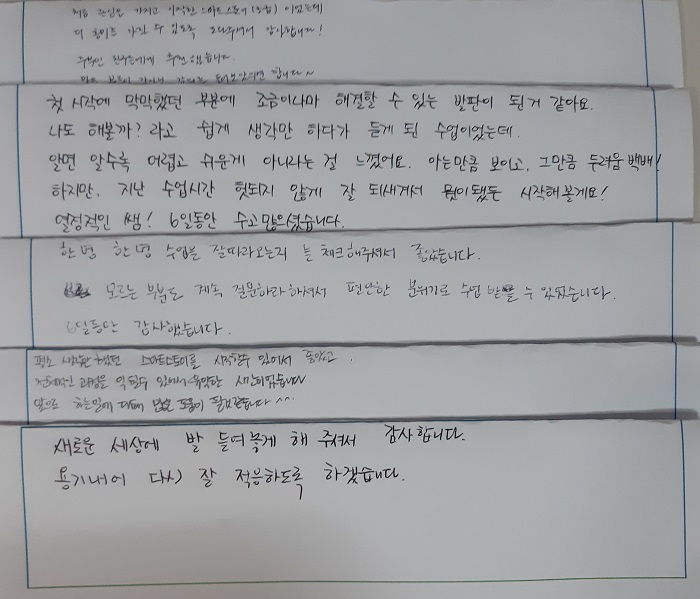 처음 관심을 가지고 시작한 스마트스토어 (수업) 이었는데
더 흥미를 가질 수 있도록 도와주셔서 감사합니다!
주변인 친구들에게 추천했습니다.
첫 시작에 막막했던 부분에 조금이나마 해결할 수 있는 발판이 된거 같아요.
나도 해볼까? 라고 쉽게 생각만 하다가 듣게 된 수업이었는데.
알면 알수록 어렵고 쉬운게 아니라는 걸 느꼈어요. 아는만큼 보이고, 그만큼 두려움 백배!
하지만, 지난 수업시간 헛되지 않게 잘 되새겨서 뭣이됐든 시작해볼게요!
열정적인 쌤! 6일동안 수고많으셨습니다.
한명 한명 수업을 잘따라오는지 늘 체크해주셔서 좋았습니다.
모르는 부분도 계속 질문하라하셔서 편안한 분위기로 수업 받을 수 있었습니다.
6일동안 감사했습니다.
평소 생각만했던 스마트스토어를 시작할수 있어서 좋았고.
전체적인 과정을 익힐수 있어서 유익한 시간이었습니다
앞으로 하는일에 대해 많은 도움이 될것같습니다 ^^
새로운 세상에 발 들여놓게 해 주셔서 감사합니다.
용기내어 다시 잘 적응하도록 하겠습니다.